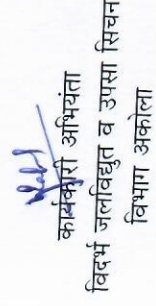 कार्यकारी अभियंता
विदर्भ जलविद्युत व उपसा सिंचन
विभाग अकोला